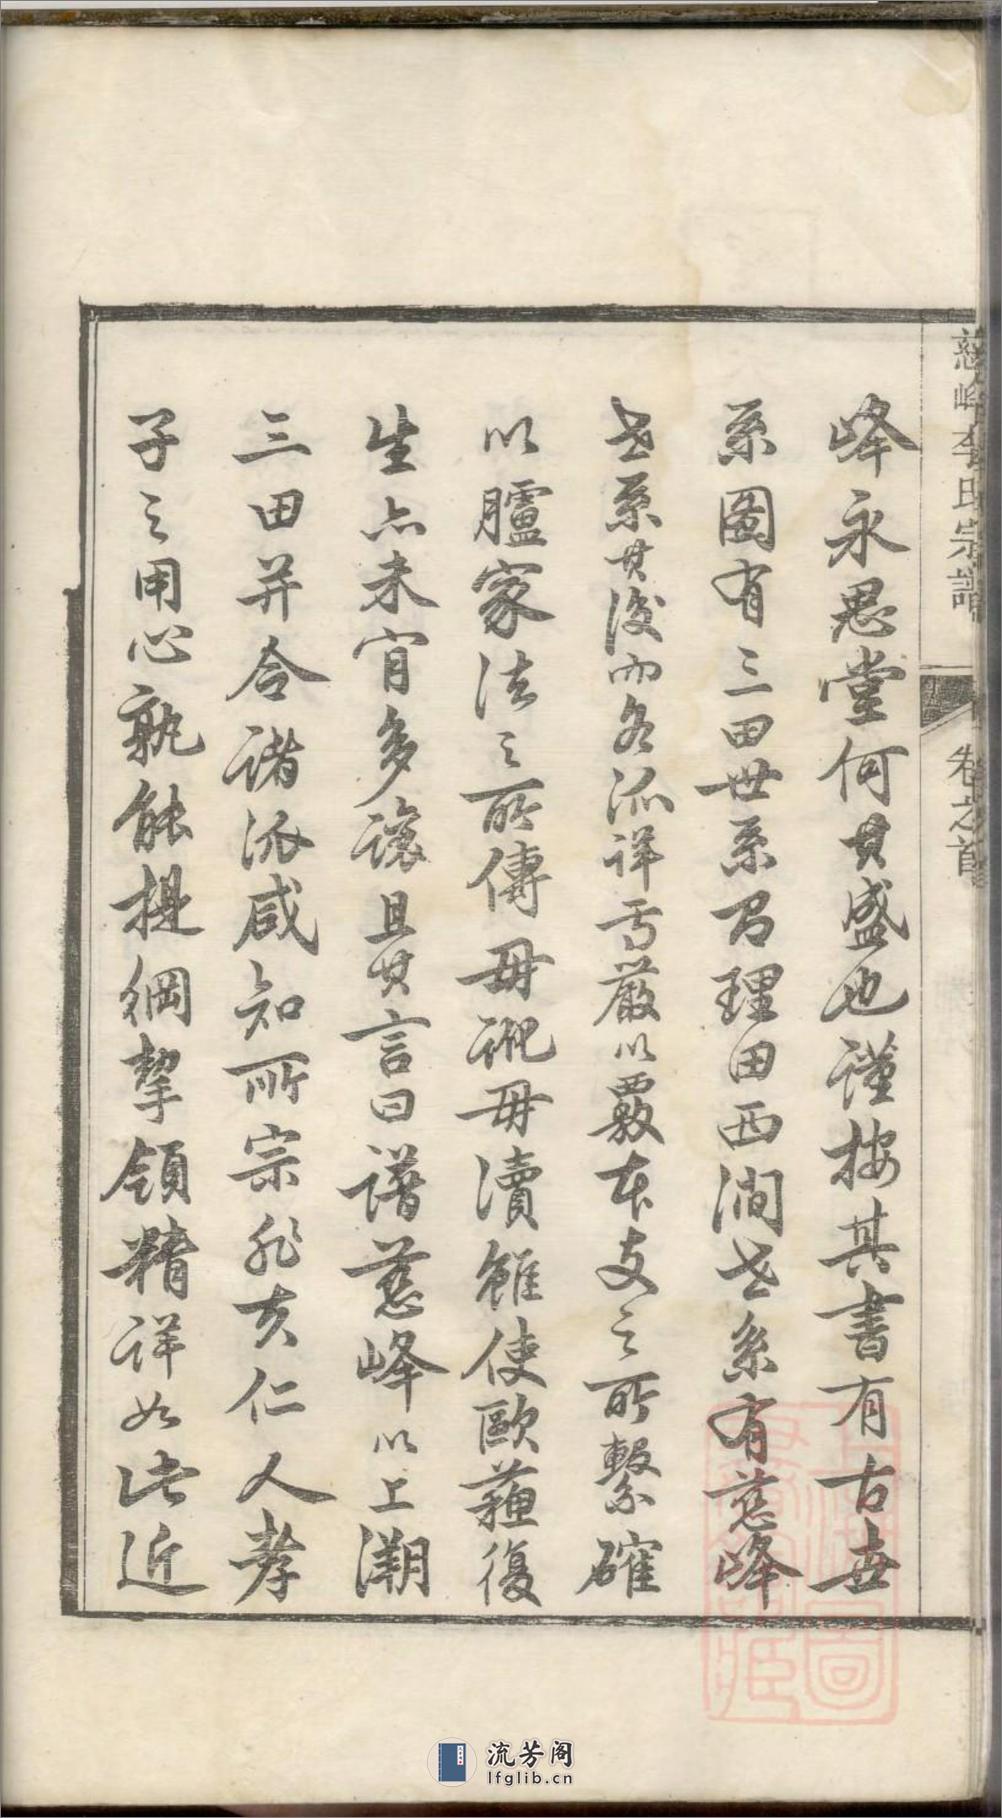 慈峰李氏宗譜
卷之首
峰永思堂何其盛也謹按其書有古世
系圖有三田世系召理田西澗世系有慈峰
世系其後而各派詳焉嚴以覈本支之所繫確
以臚家法之所傳毋訛毋瀆雖使歐蘇復
生亦未肯多讓且其言曰譜慈峰以上溯
三田并合諸派咸知所宗非夫仁人孝
子之用心孰能提綱挈領精詳如此近
流芳阁
lfglib.cn